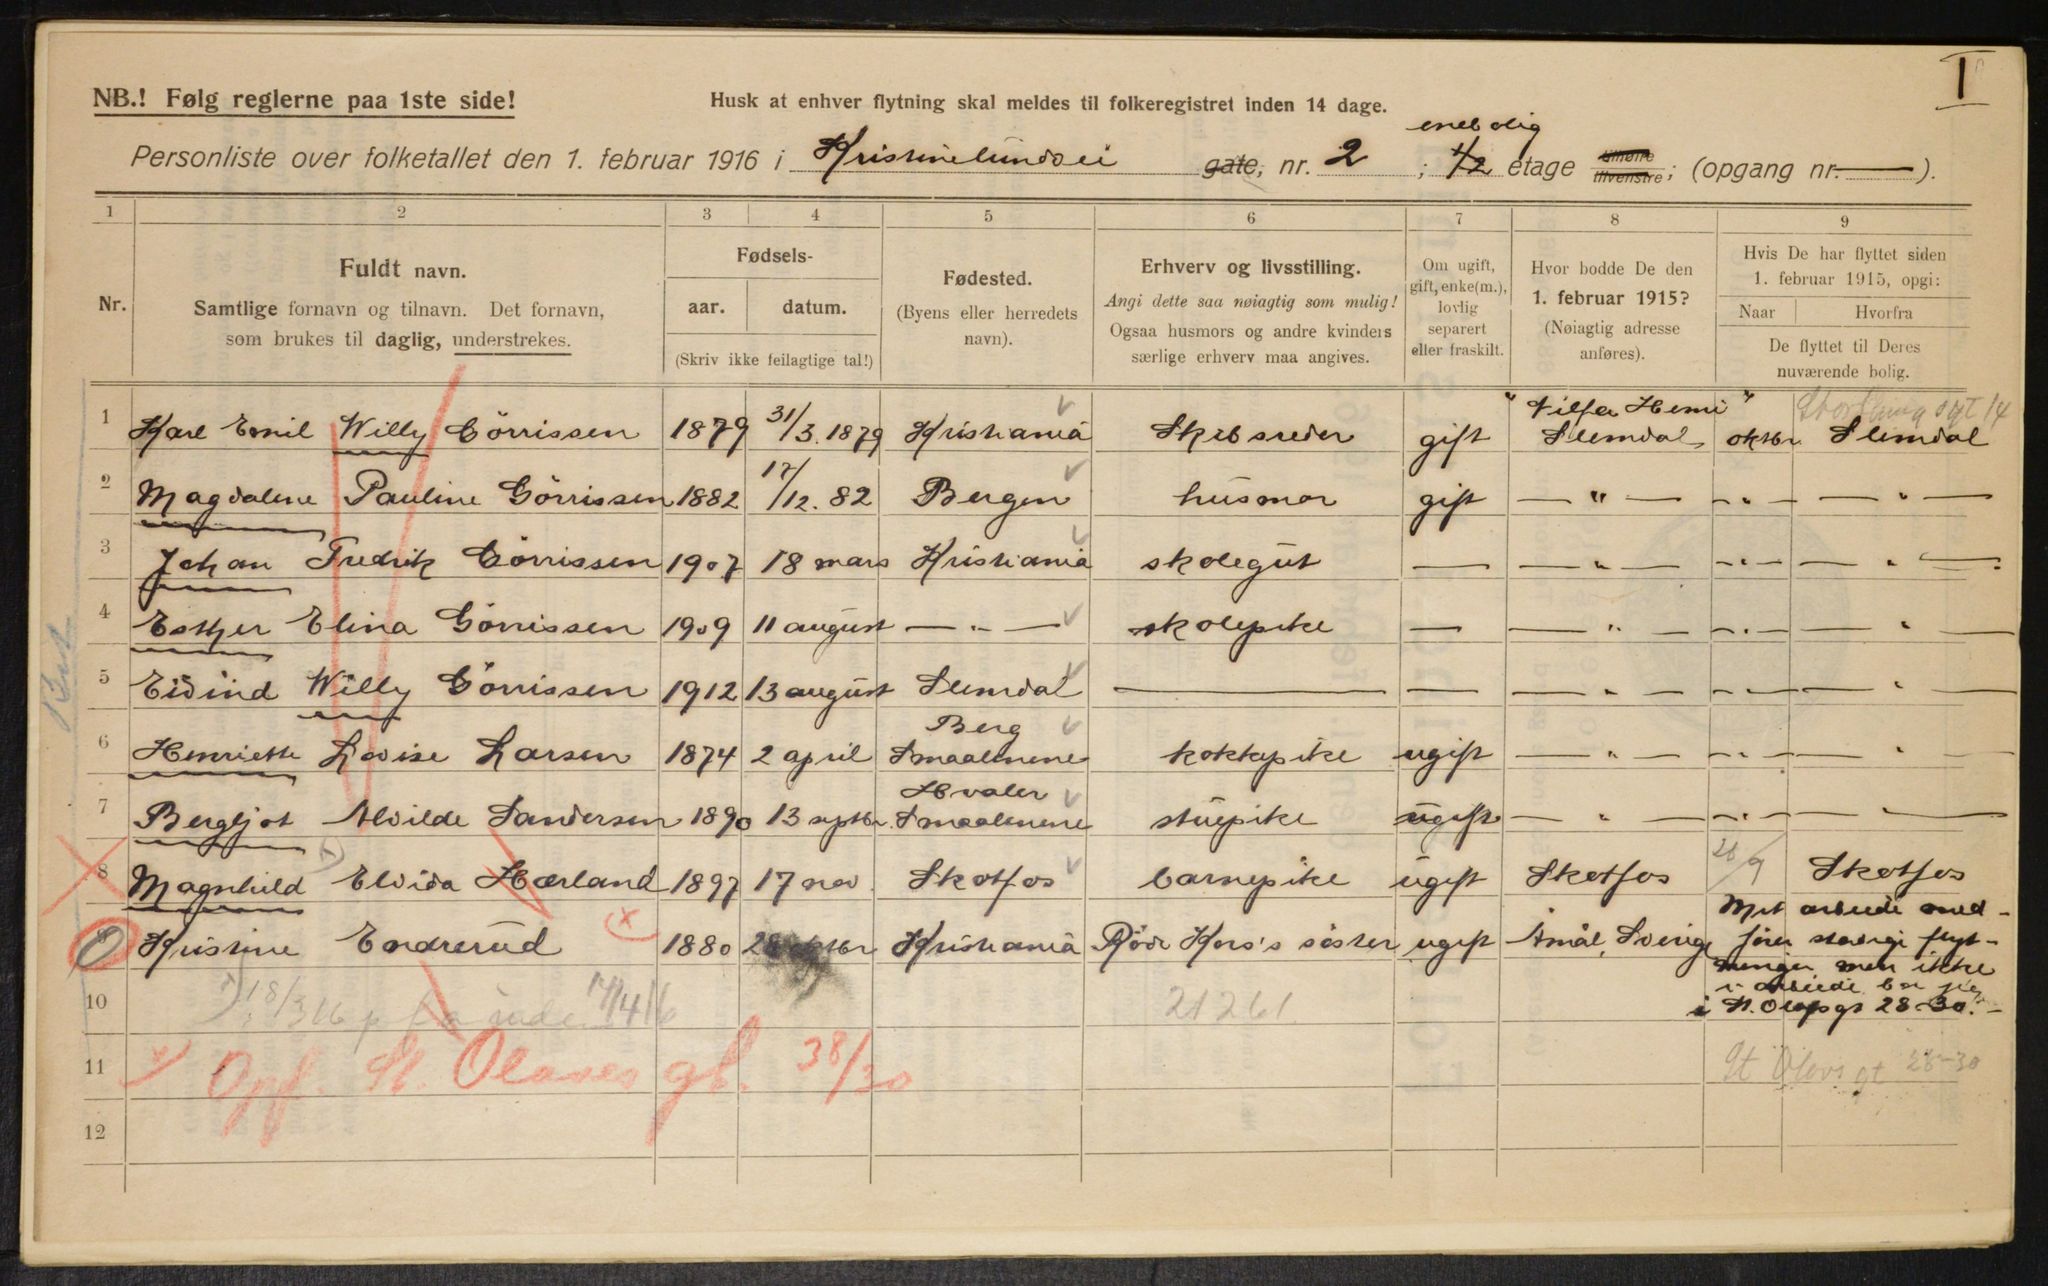 I
NB.! Følg reglerne paa 1ste side!
Husk at enhver flytning skal meldes til folkeregistret inden 14 dage.
enebolig
Personliste over folketallet den 1. februar 1916 i Kristinelundvei gate, nr. 2 ; 1/2 etage tilhøire tilvenstre; (opgang nr. — ).
1 2 3 4 5 6 7 8 9
Nr.
Fuldt navn.
Samtlige fornavn og tilnavn. Det fornavn,
som brukes til daglig, understrekes.
Fødsels-
aar. datum.
(Skriv ikke feilagtige tal!)
Fødested.
(Byens eller herredets
navn).
Erhverv og livsstilling.
Angi dette saa nøiagtig som mulig!
Ogsaa husmors og andre kvinders
særlige erhverv maa angives.
Om ugift,
gift, enke(m.),
lovlig
separert
eller fraskilt.
Hvor bodde De den
1. februar 1915?
(Nøiagtig adresse
anføres).
Hvis De har flyttet siden
1. februar 1915, opgi:
Naar Hvorfra
De flyttet til Deres
nuværende bolig.
1 Karl Emil Willy Görrissen 1879 31/3.1879 Kristiania Skibsreder gift Slemdal oktbr Slemdal
2 Magdalene Pauline Görrissen 1882 17/12.82 Bergen husmor gift — " — — " — — " —
3 Johan Fredrik Görrissen 1907 18 mars Kristiania skolegut — — " — — " — — " —
4 Esther Elina Görrissen 1909 11 august — " — skolepike — — " — — " — — " —
5 Eivind Willy Görrissen 1912 13 august Slemdal — — — " — — " — — " —
6 Henriette Lovise Larsen 1874 2 april Berg Smaalenene kokkepike ugift — " — — " — — " —
7 Bergljot Alvilde Sandersen 1890 13 septbr. Hvaler Smaalenene stuepike ugift — " — — " — — " —
8 Magnhild Elvida Hærland 1897 17 nov. Skotfos barnepike ugift Skotfos 28/9 Skotfos
9 Kristine Endrerud 1880 28 oktbr Kristiania Röde Kors's söster ugift Åmål, Sverige
Mit arbeide med-
förer stadige flyt-
ninger, men ikke
i arbeide bor jeg
i St. Olafsgt 28-30.
10 18/3 16 17/4 16 21261
11 Opf. St. Olaves gt. 38/30
St Olavs gt 28-30
12